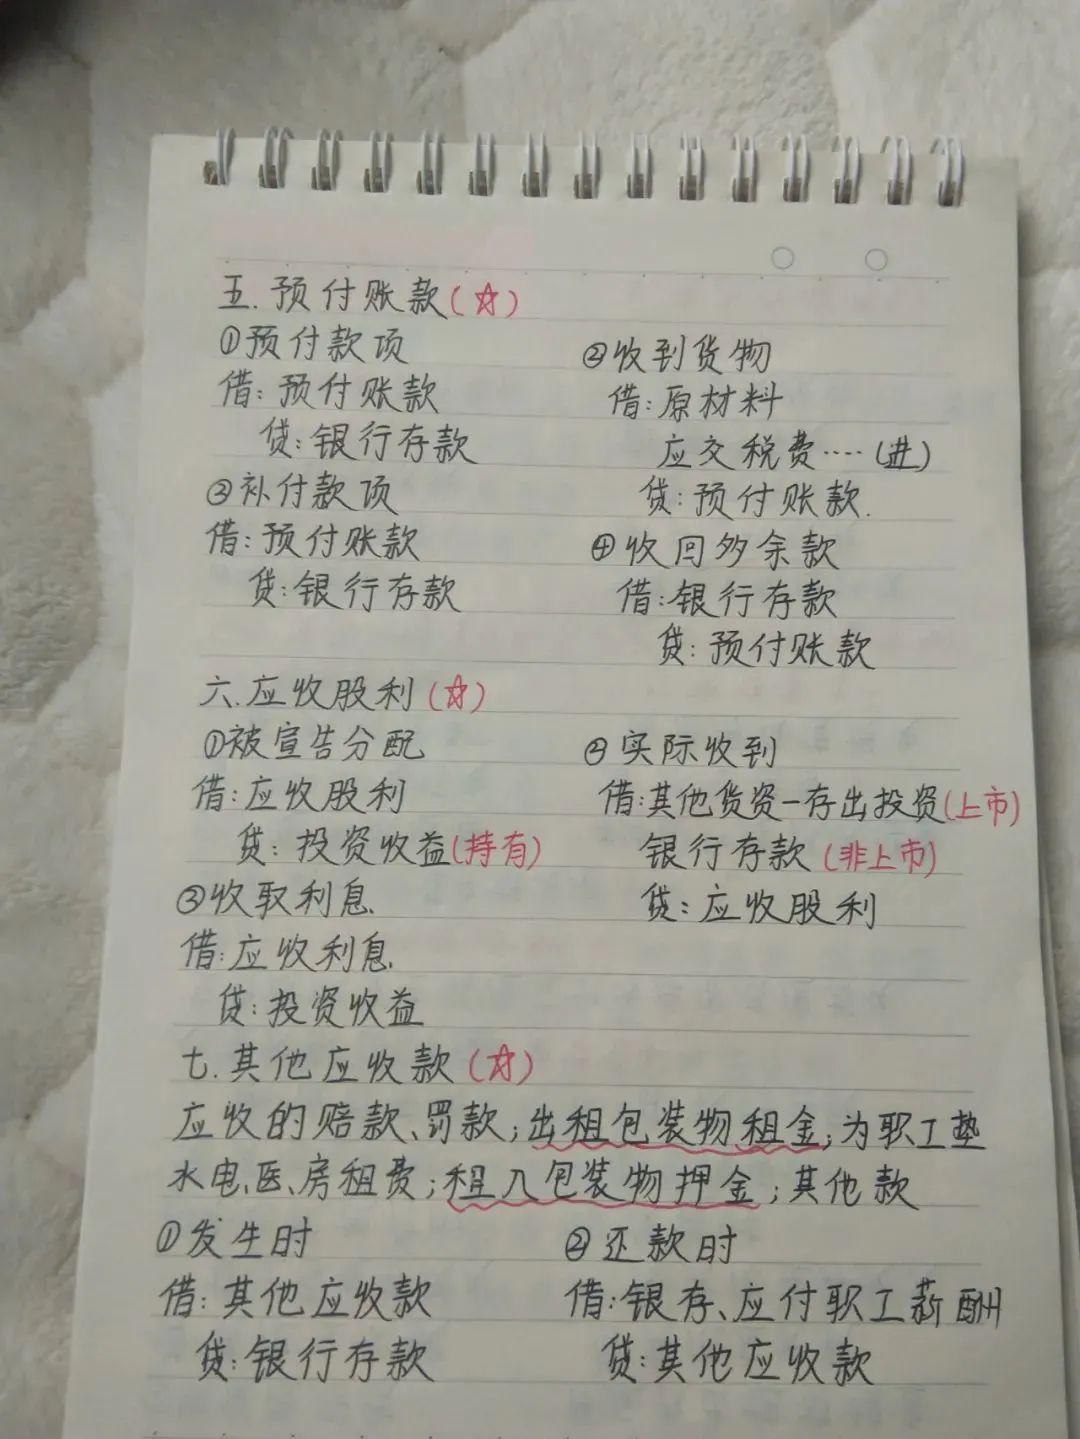 五.预付账款(☆)
①预付款项
借:预付账款
贷:银行存款
②收到货物
借:原材料
应交税费····(进)
贷:预付账款.
③补付款项
借:预付账款
贷:银行存款
④收回多余款
借:银行存款
贷:预付账款
六.应收股利(☆)
①被宣告分配
借:应收股利
贷:投资收益(持有)
②实际收到
借:其他货资—存出投资(上市)
银行存款(非上市)
贷:应收股利
③收取利息.
借:应收利息.
贷:投资收益
七.其他应收款(☆)
应收的赔款、罚款;出租包装物租金;为职工垫
水电、医、房租费;租入包装物押金;其他款
①发生时
借:其他应收款
贷:银行存款
②还款时
借:银存、应付职工薪酬
贷:其他应收款